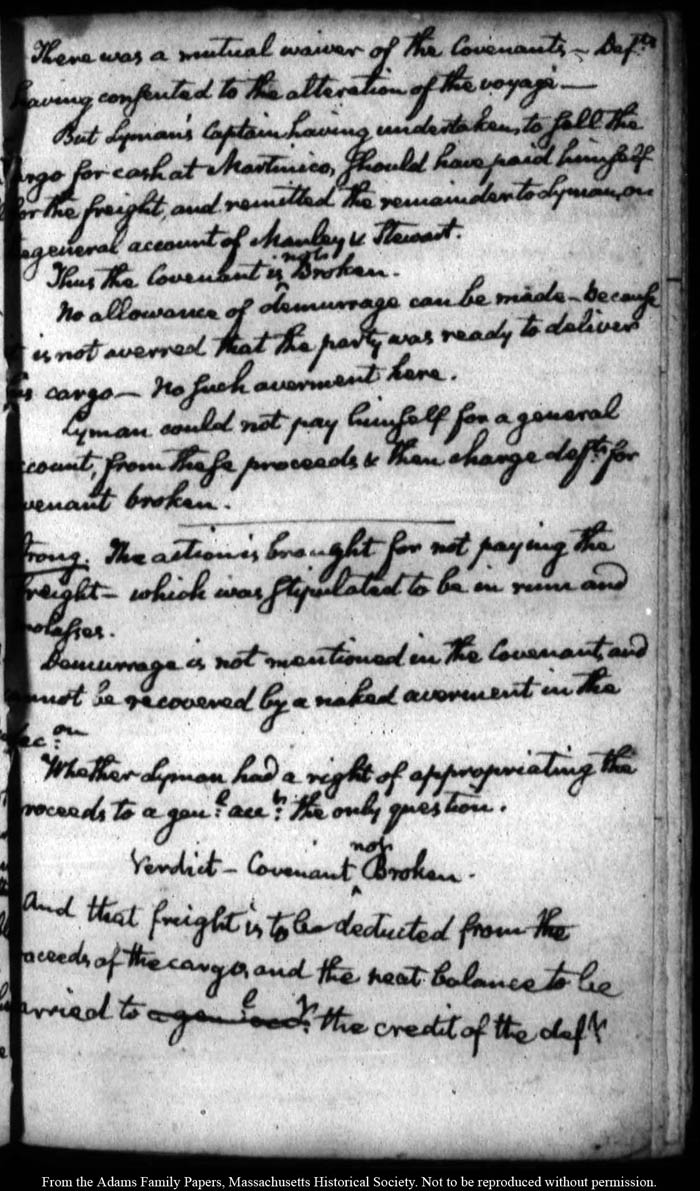 There was a mutual waiver of the Covenants – Defts
having consented to the alteration of the voyage —
But Lyman's Captain having undertaken, to sell the
argo for cash at Martinico, should have paid himself
for the freight, and remitted the remainder to Lyman, on
general account of Manley & Stewart.
Thus the Covenant is not Broken.
No allowance of demurrage can be made – because
is not averred that the party was ready to deliver
his cargo – no such averment here.
Lyman could not pay himself for a general
ccount, from these proceeds & then charge defts for
venant broken.
trong. The action is brought for not paying the
freight – which was stipulated to be in rum and
molasses.
Demurrage is not mentioned in the Covenant, and
annot be recovered by a naked averment in the
decon
Whether Lyman had a right of appropriating the
roceeds to a genl acct the only question.
Verdict – Covenant not Broken.
And that freight is to be deducted from the
roceeds of the cargo, and the neat balance to be
arried to a genl acct the credit of the deft
From the Adams Family Papers, Massachusetts Historical Society. Not to be reproduced without permission.